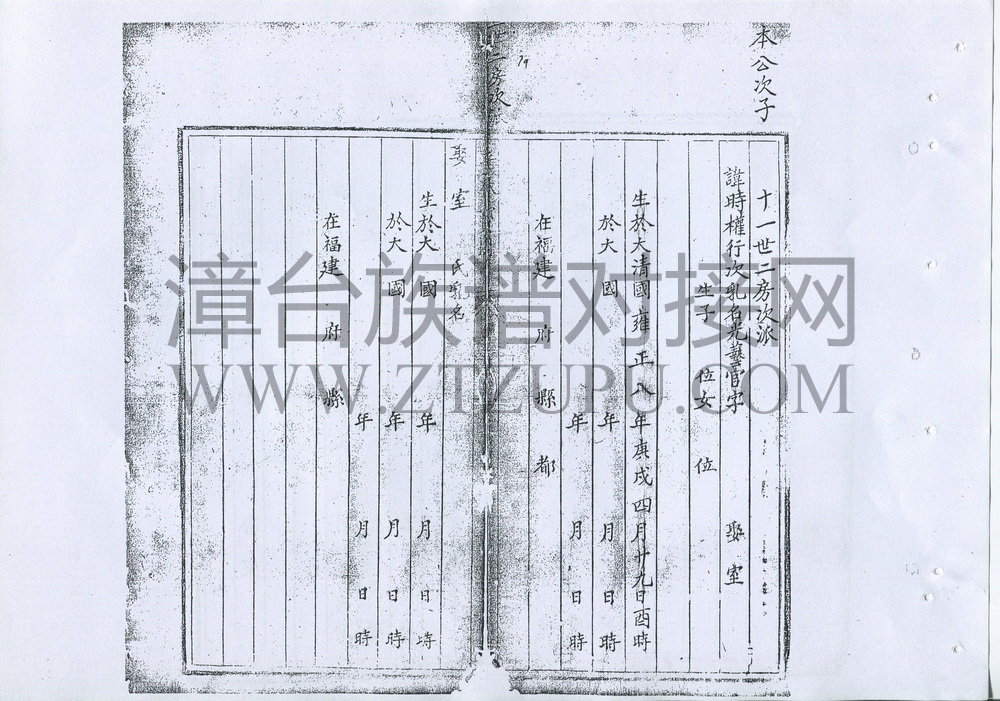 本公次子
十一世二房次派
諱時權行次乳名光蕐官字 娶室
生子 位女 位
生於大清國雍正八年庚戌四月廿九日酉時
於大 國 年 月 日時
年 月 日時
在福建 府 縣 都
二房次
79
娶室 氏乳名
生於大 國 年 月 日時
於大 國 年 月 日時
年 月 日時
在福建 府 縣
漳台族谱对接网
WWW.ZTZUPU.COM